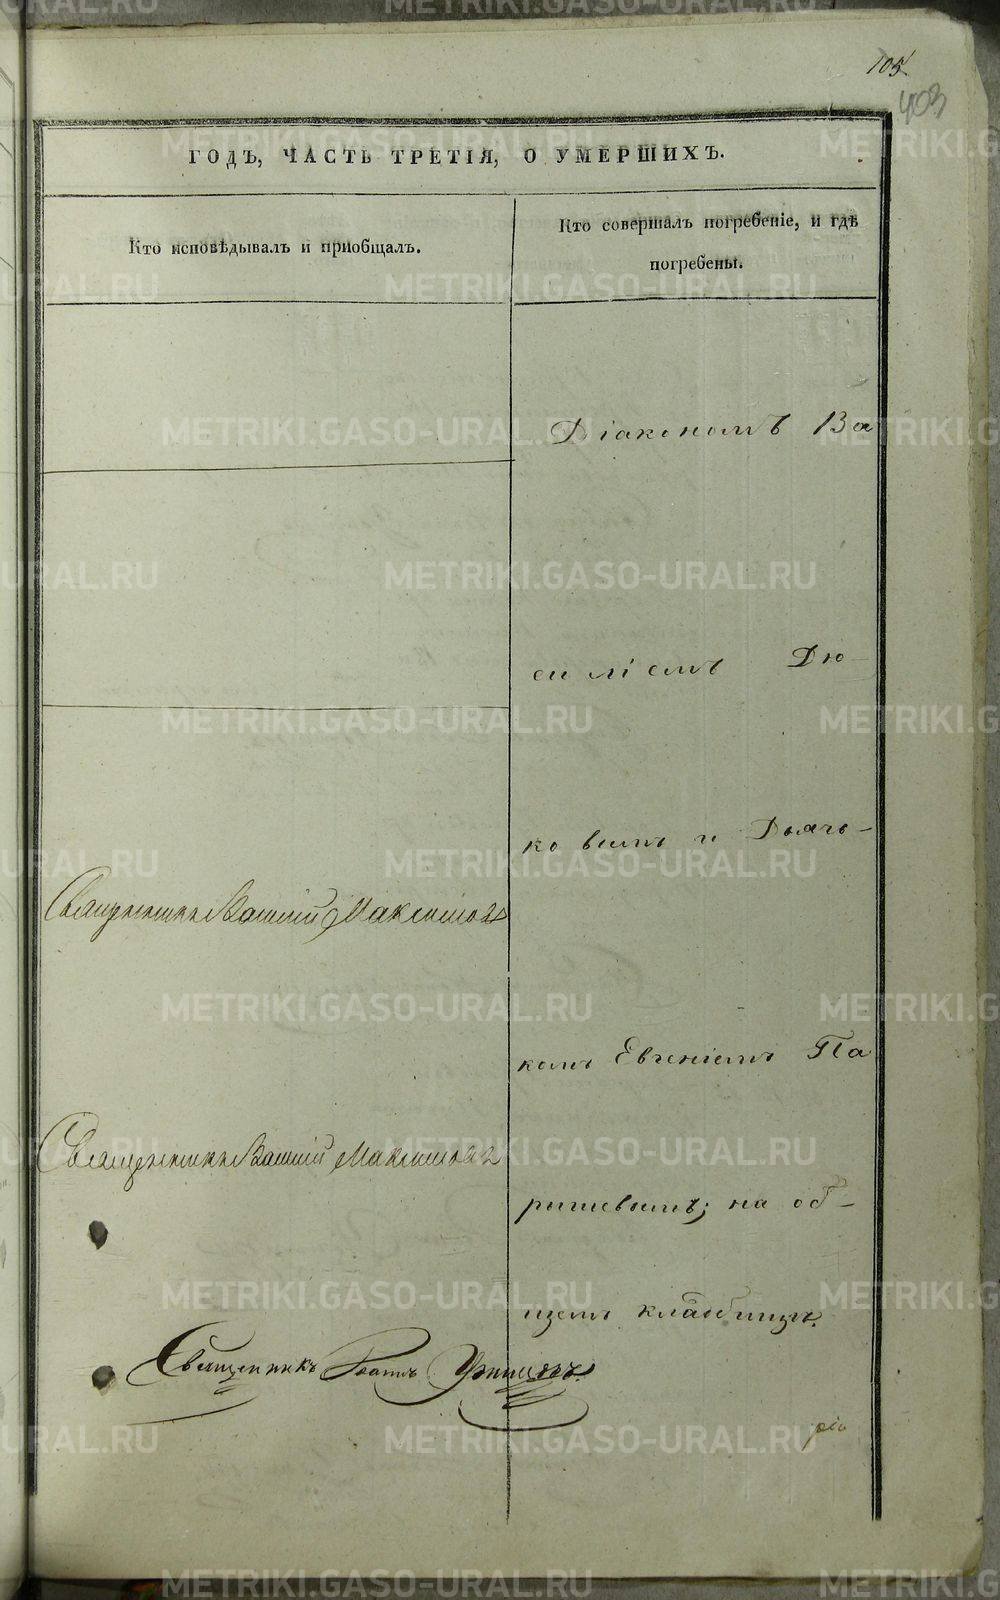 105
403
ГОДЪ, ЧАСТЬ ТРЕТІЯ, О УМЕРШИХЪ.
Кто исповѣдывалъ и пріобщалъ.
Кто совершалъ погребеніе, и гдѣ
погребены.
Діакономъ Ва
силіемъ Дю-
ковымъ и Дьячь-
Священникъ Василій Максимовъ
комъ Евгеніемъ Па
Священникъ Василій Максимовъ
рышевымъ; на об-
щемъ кладбищѣ.
Священникъ Іоаннъ
METRIKI.GASO-URAL.RU